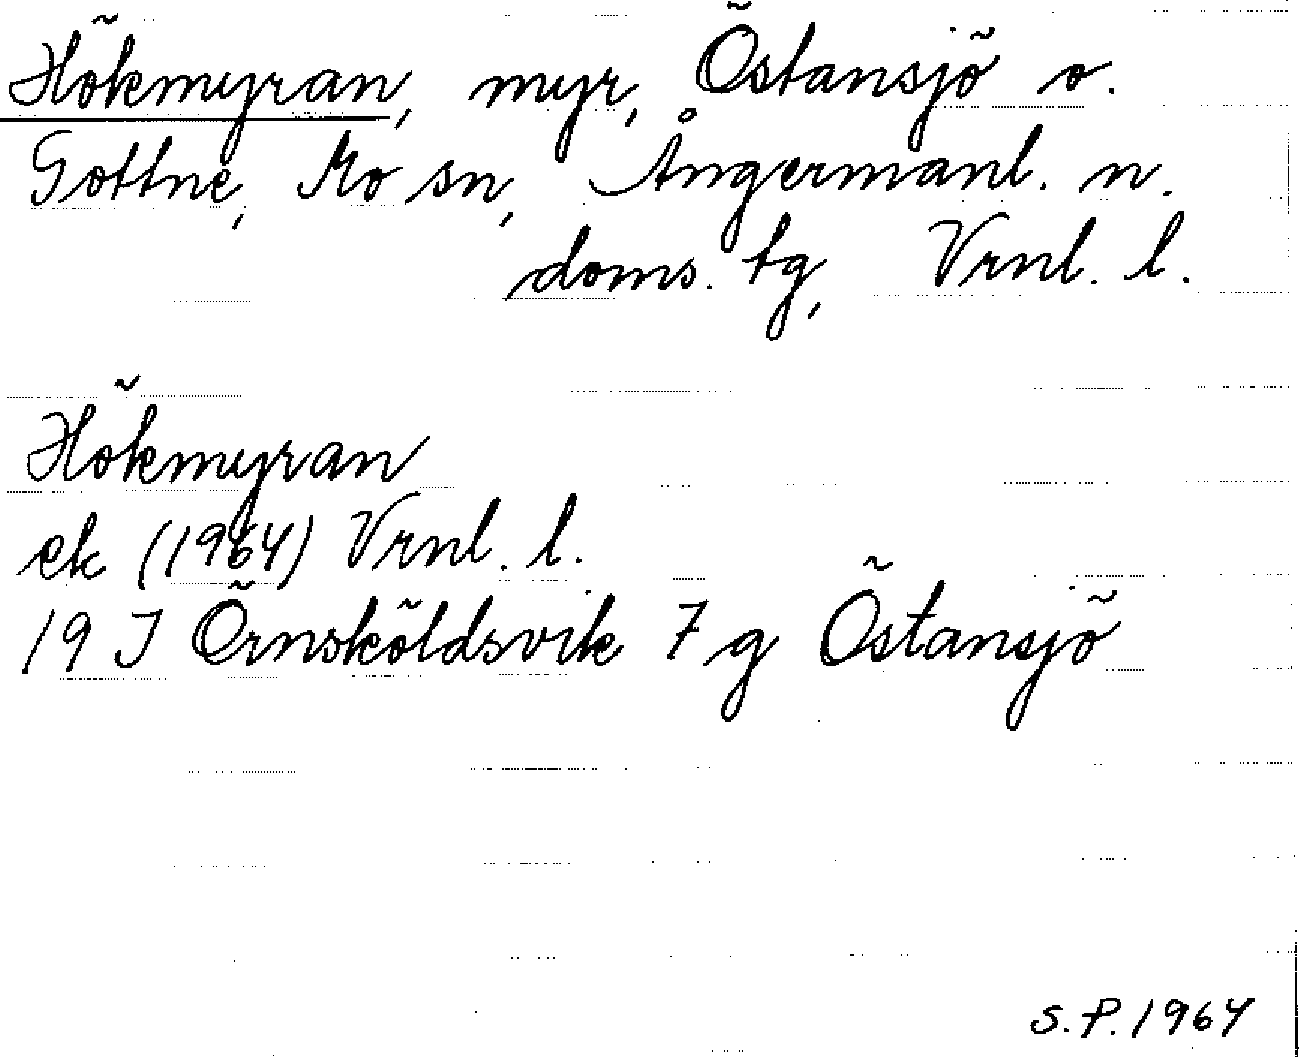 Hökmyran, myr, Östansjö o.
Gottne, Mo sn, Ångermanl. n.
doms. tg, Vrnl. l.
Hökmyran
ek (1964) Vrnl. l.
19 J Örnsköldsvik 7 g Östansjö
S.P. 1964